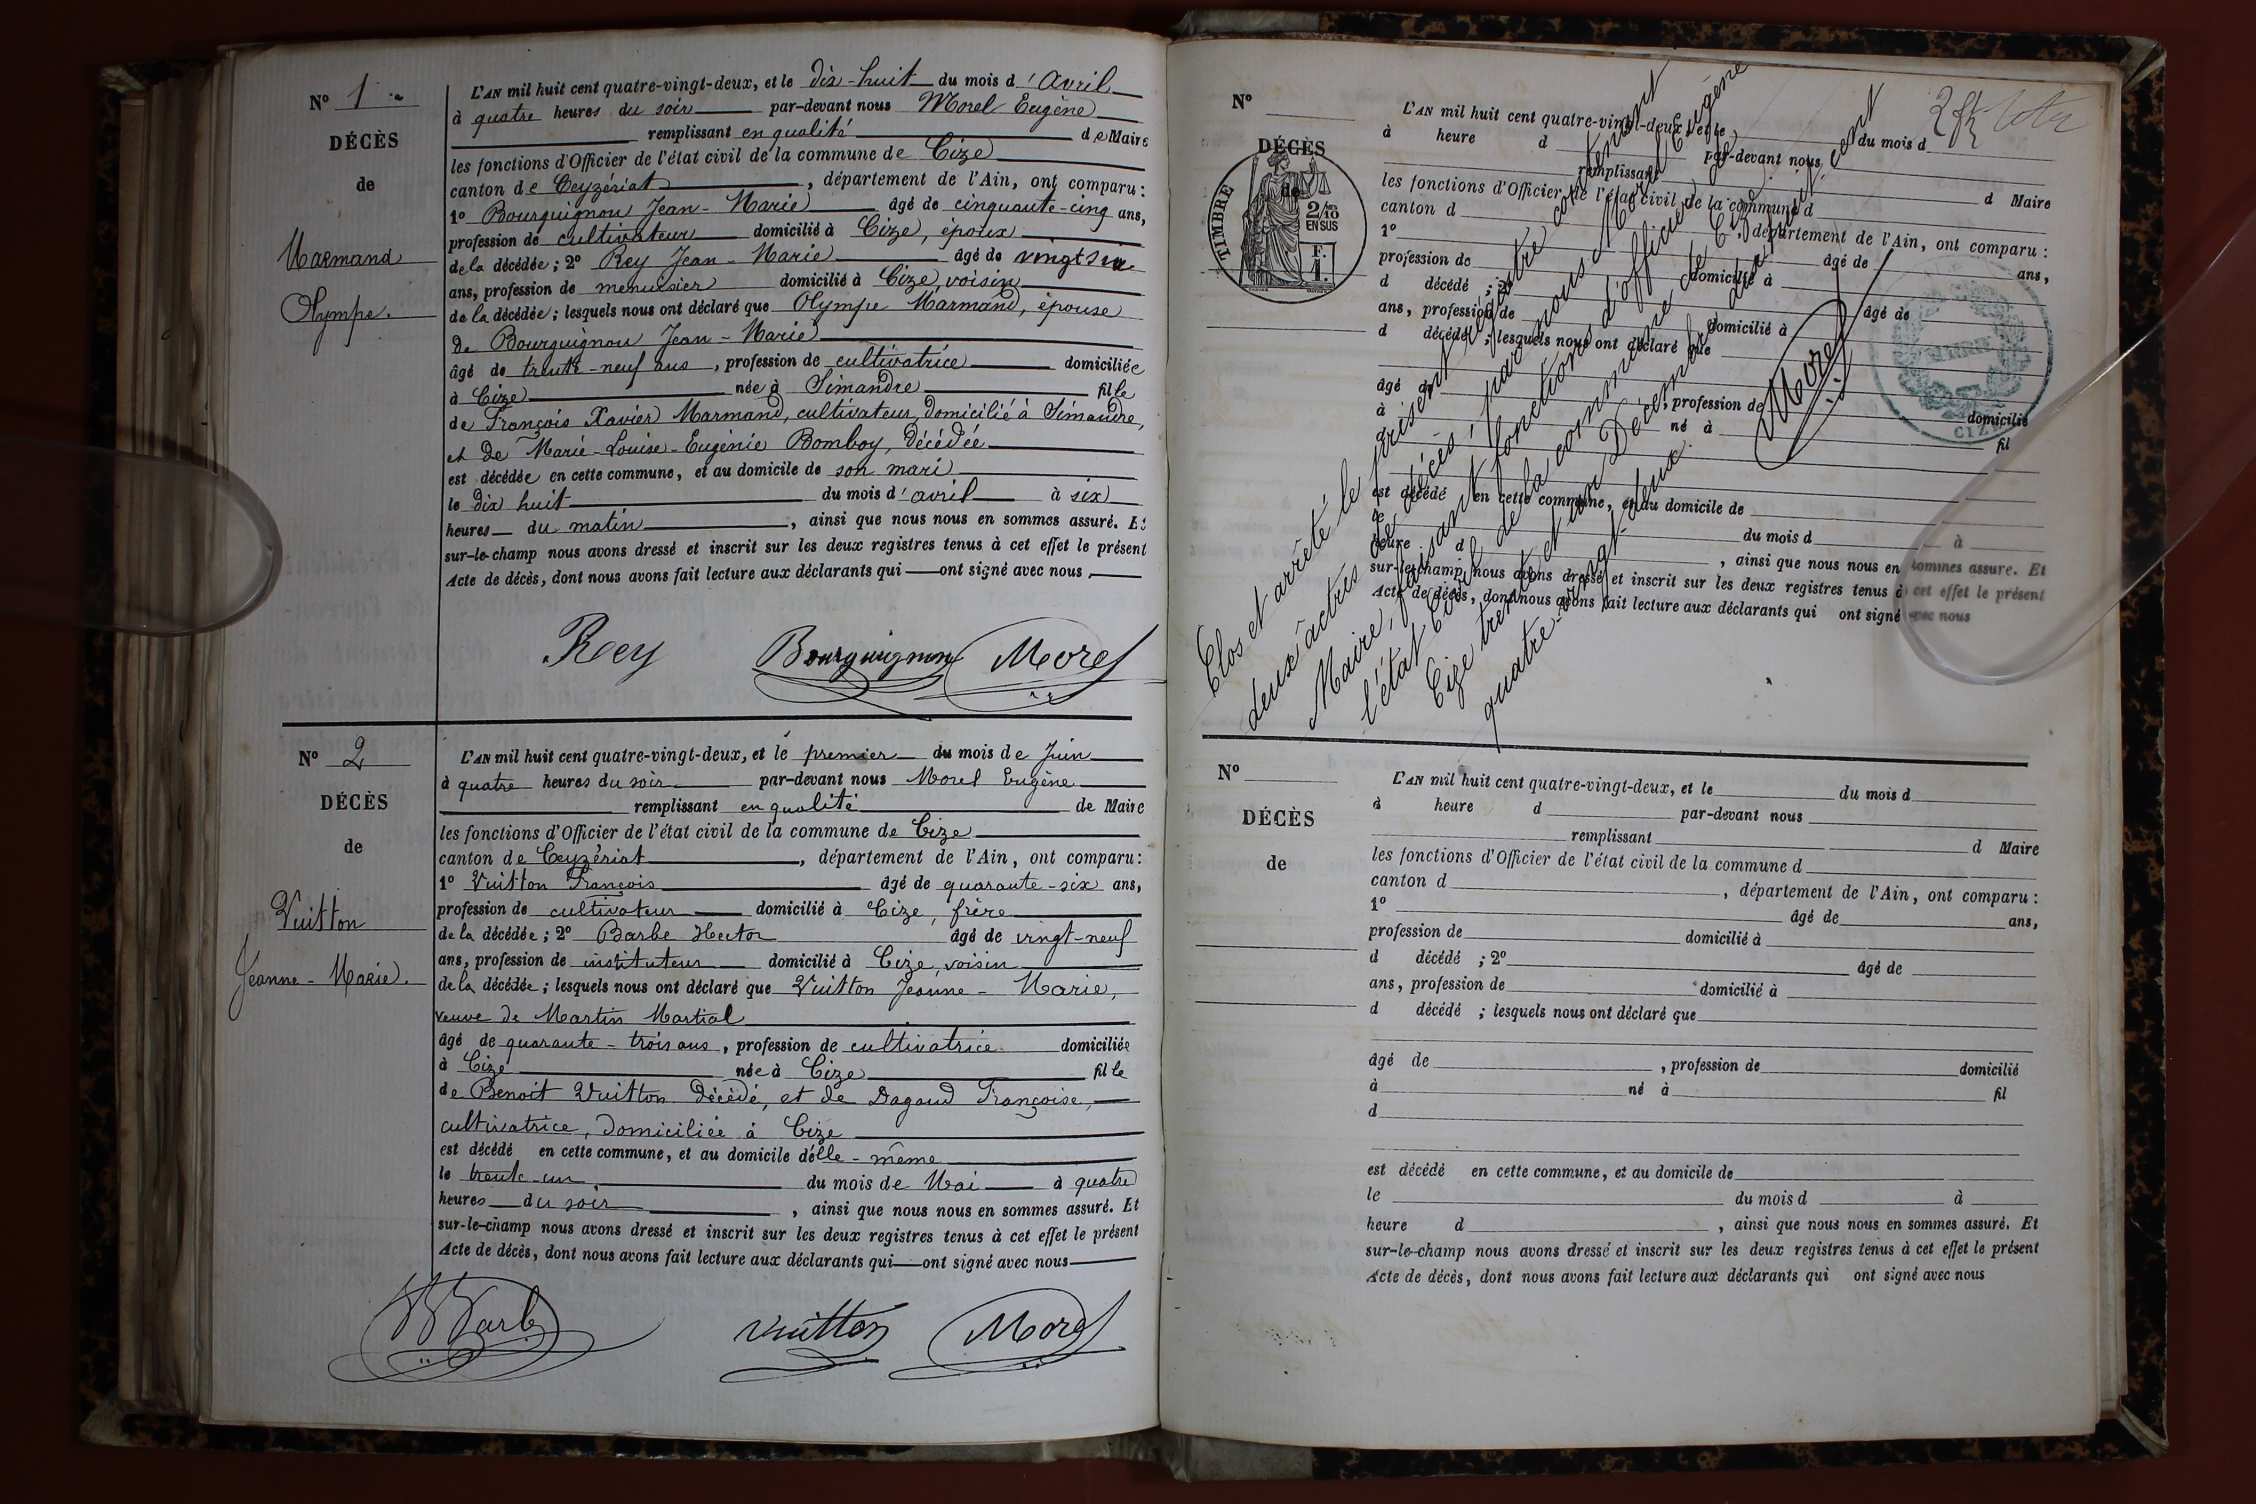 N° 1
DÉCÈS
de
Marmand
Olympe.
L'AN mil huit cent quatre-vingt-deux, et le dix-huit du mois d'Avril
à quatre heures du soir par-devant nous Morel Eugène
remplissant en qualité de Maire
les fonctions d'Officier de l'état civil de la commune de Cize
canton de Ceyzériat, département de l'Ain, ont comparu :
1° Bourguignon Jean-Marie âgé de cinquante-cinq ans,
profession de cultivateur domicilié à Cize, époux
de la décédée ; 2° Rey Jean-Marie âgé de vingt six
ans, profession de menuisier domicilié à Cize, voisin
de la décédée ; lesquels nous ont déclaré que Olympe Marmand, épouse
de Bourguignon Jean-Marie
âgé de trente-neuf ans, profession de cultivatrice domiciliée
à Cize née à Simandre fille
de François Xavier Marmand, cultivateur, domicilié à Simandre,
et de Marie-Louise-Eugénie Bomboy, décédée
est décédée en cette commune, et au domicile de son mari
le dix huit du mois d'avril à six
heures du matin, ainsi que nous nous en sommes assuré. Et
sur-le-champ nous avons dressé et inscrit sur les deux registres tenus à cet effet le présent
Acte de décès, dont nous avons fait lecture aux déclarants qui ont signé avec nous,
Rey Bourguignon Morel
N° 2
DÉCÈS
de
Vuitton
Jeanne-Marie.
L'AN mil huit cent quatre-vingt-deux, et le premier du mois de Juin
à quatre heures du soir par-devant nous Morel Eugène
remplissant en qualité de Maire
les fonctions d'Officier de l'état civil de la commune de Cize
canton de Ceyzériat, département de l'Ain, ont comparu :
1° Vuitton François âgé de quarante-six ans,
profession de cultivateur domicilié à Cize, frère
de la décédée ; 2° Barbe Hector âgé de vingt-neuf
ans, profession de instituteur domicilié à Cize, voisin
de la décédée ; lesquels nous ont déclaré que Vuitton Jeanne-Marie,
veuve de Martin Martial
âgé de quarante-trois ans, profession de cultivatrice domiciliée
à Cize née à Cize fille
de Benoit Vuitton décédé, et de Dagaud Françoise,
cultivatrice, domiciliée à Cize
est décédé en cette commune, et au domicile d'elle-même
le trente-un du mois de Mai à quatre
heures du soir, ainsi que nous nous en sommes assuré. Et
sur-le-champ nous avons dressé et inscrit sur les deux registres tenus à cet effet le présent
Acte de décès, dont nous avons fait lecture aux déclarants qui ont signé avec nous
Barbe Vuitton Morel
N°
DÉCÈS
de
TIMBRE
2/10 EN SUS
F. 1
L'AN mil huit cent quatre-vingt-deux, et le du mois d
à heure d par-devant nous
remplissant d Maire
les fonctions d'Officier de l'état civil de la commune d
canton d , département de l'Ain, ont comparu :
1° âgé de ans,
profession de domicilié à
d décédé ; 2° âgé de
ans, profession de domicilié à
d décédé ; lesquels nous ont déclaré que
âgé de , profession de domicilié
à né à fil
d
est décédé en cette commune, et au domicile de
le du mois d à
heure d , ainsi que nous nous en sommes assuré. Et
sur-le-champ nous avons dressé et inscrit sur les deux registres tenus à cet effet le présent
Acte de décès, dont nous avons fait lecture aux déclarants qui ont signé avec nous
Clos et arrêté le présent registre contenant
deux actes de décès, par nous Morel Eugène
Maire, faisant fonctions d'officier de
l'état Civil de la commune de Cize.
Cize trente et un Décembre dix huit cent
quatre-vingt-deux.
Morel
MAIRIE
CIZE
N°
DÉCÈS
de
L'AN mil huit cent quatre-vingt-deux, et le du mois d
à heure d par-devant nous
remplissant d Maire
les fonctions d'Officier de l'état civil de la commune d
canton d , département de l'Ain, ont comparu :
1° âgé de ans,
profession de domicilié à
d décédé ; 2° âgé de
ans, profession de domicilié à
d décédé ; lesquels nous ont déclaré que
âgé de , profession de domicilié
à né à fil
d
est décédé en cette commune, et au domicile de
le du mois d à
heure d , ainsi que nous nous en sommes assuré. Et
sur-le-champ nous avons dressé et inscrit sur les deux registres tenus à cet effet le présent
Acte de décès, dont nous avons fait lecture aux déclarants qui ont signé avec nous